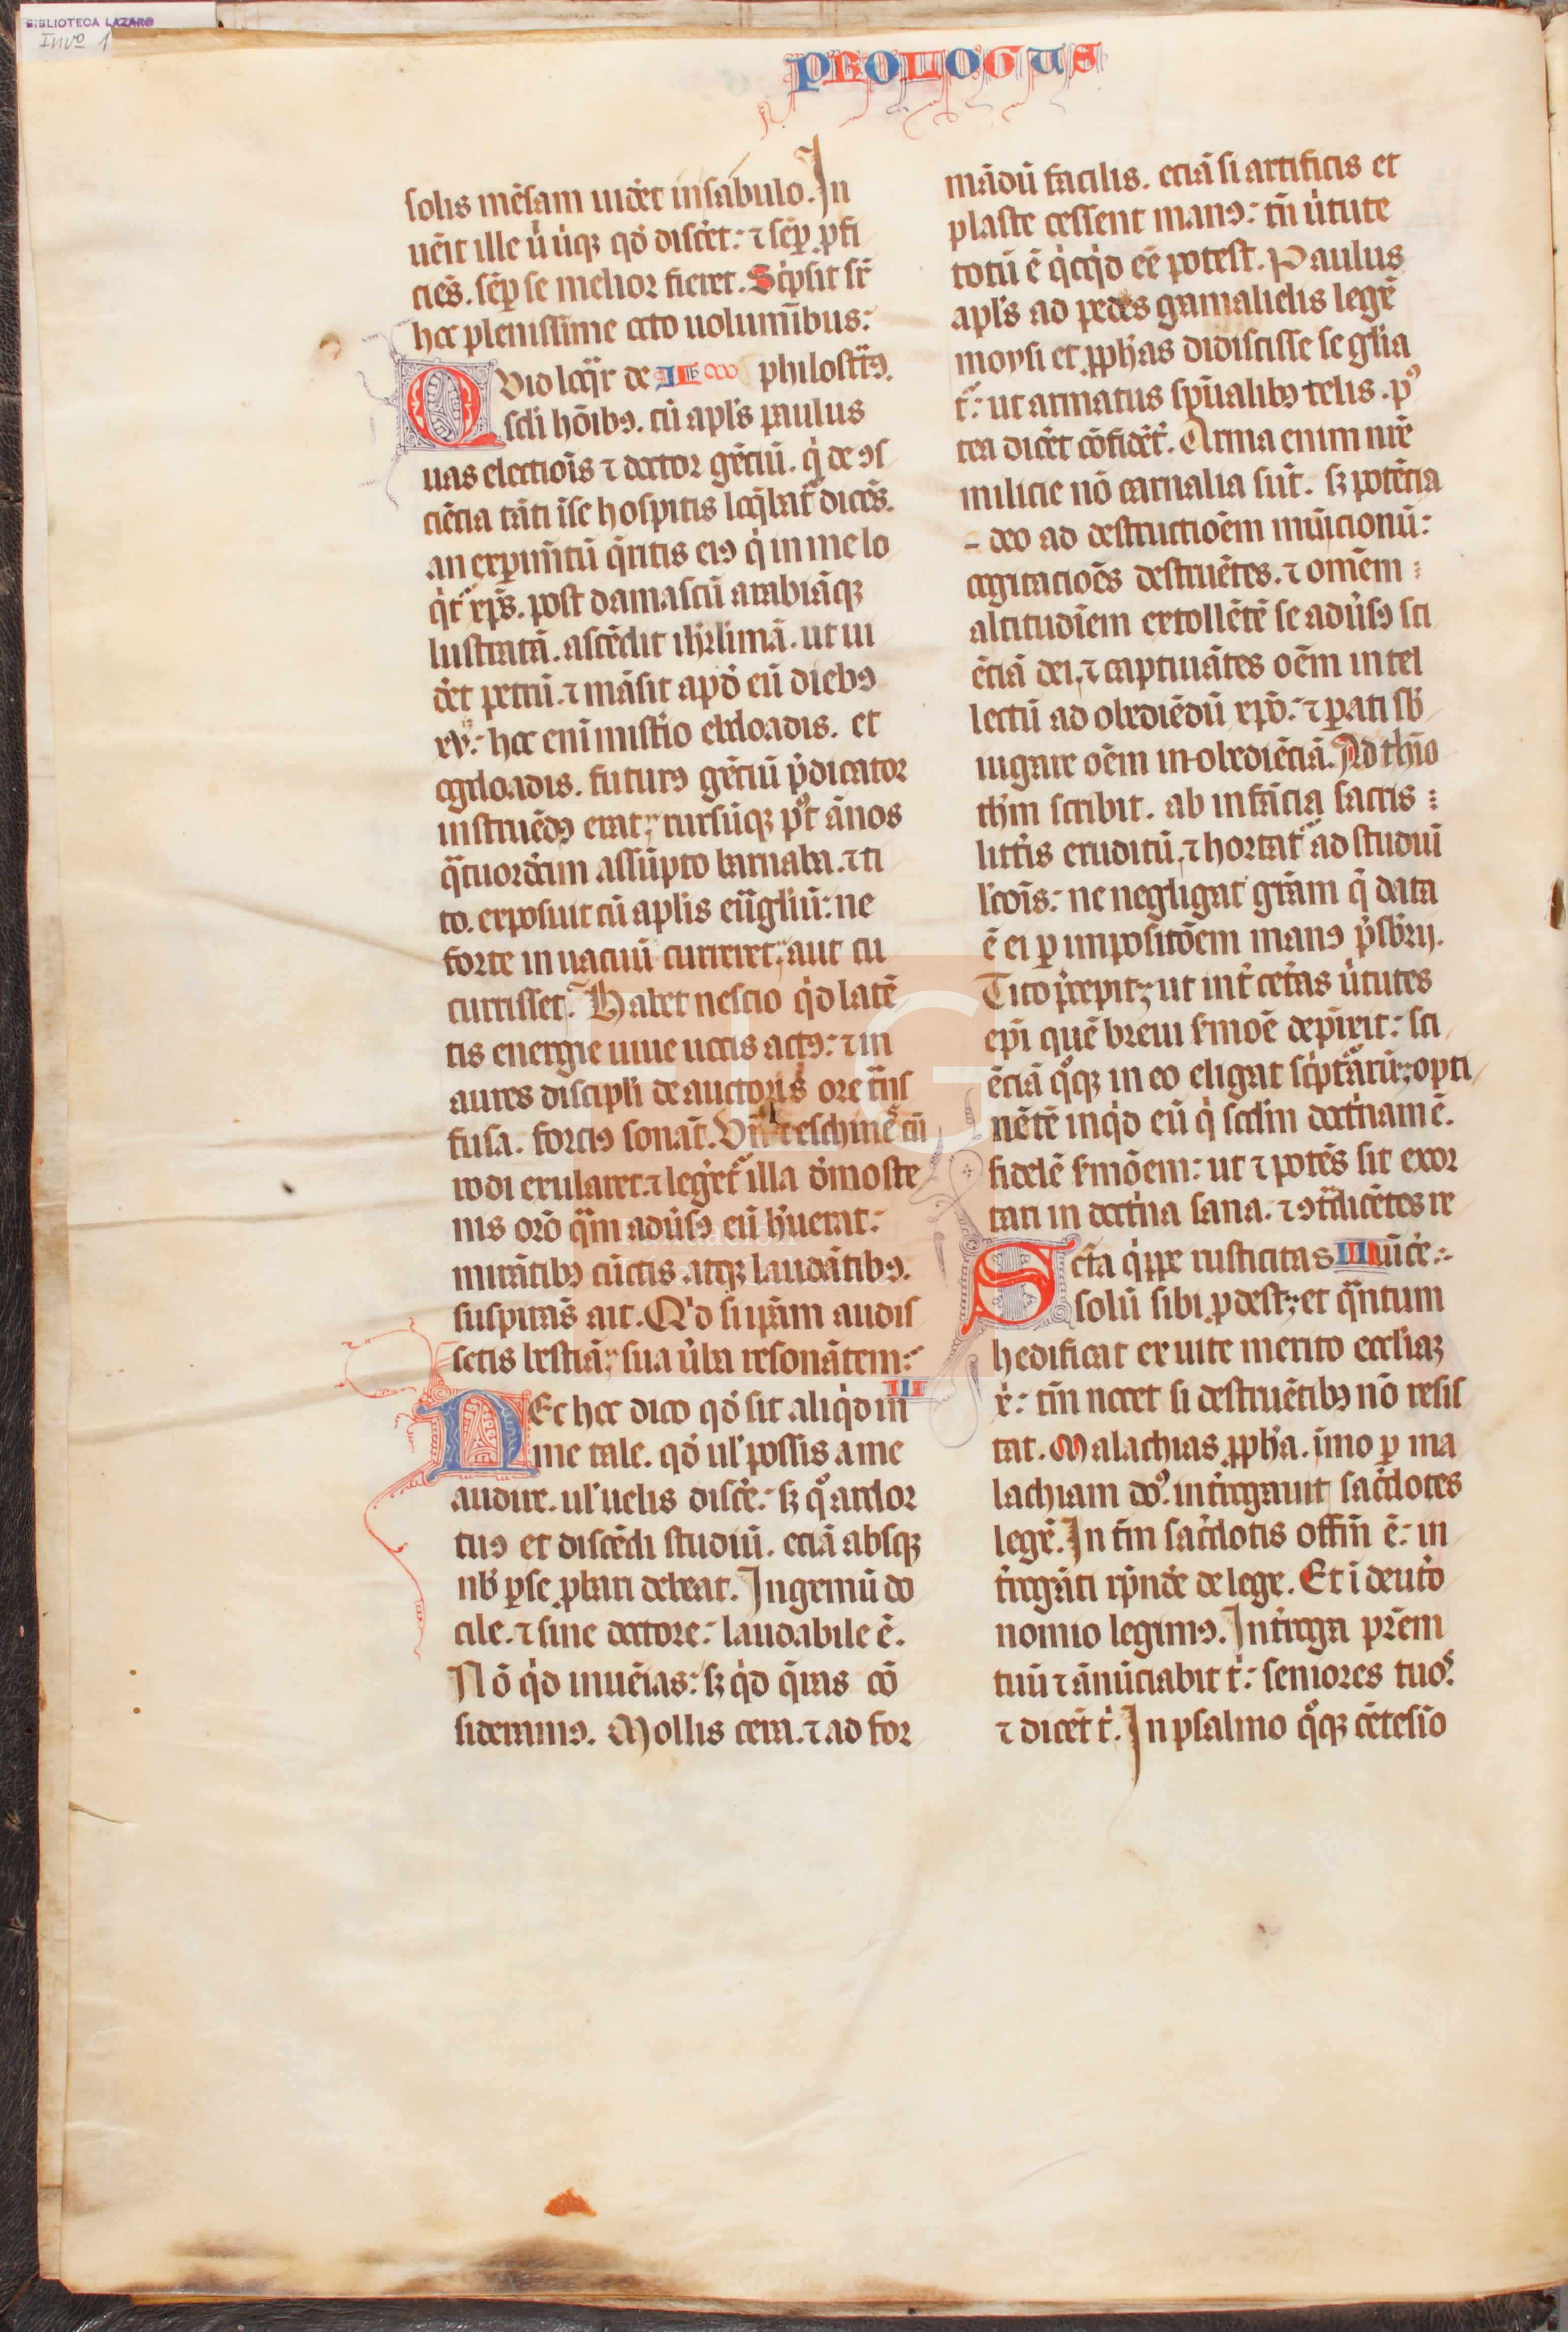 BIBLIOTECA LAZARO
Invº 1
PROLOGUS
solis mēsam uidēt in sabulo. In
uēit ille uͥ uͥqꝫ qd̛ discēt: ⁊ sēꝑ ꝓfi
ciēs. sēꝑ se melior fieret. Scͥpsit sr̄
hoc plenissime octo uoluminibus:
Quid loqͣr de II philosr̄ꝯ.
scl̄i hōibꝯ. cū apl̄s paulus
uas electiōis ⁊ doctor gētiū. qͥ de ꝯs
ciētia tāti ī se hospitis loqͣbat̄ dicēs.
an experimētū qͣritis eiꝯ qͥ in me lo
qͥt̄ xp̄s. post damascū arabiāqꝫ
lustratā. ascēdit ihr̄limā. ut ui
dēt petrū. ⁊ māsit apd̛ eū diebꝯ
xv: hoc enī mistīo ebdoadis. et
ogdoadis. futurꝯ gētiū p̄dicator
instruēdꝯ erat; rursūqꝫ pꝰt ānos
qͣtuordecim assūpto barnaba. ⁊ ti
to. exposuit cū aplīs eūgliū: ne
forte in uacuū curreret; aut cu
currisset. Habet nescio qͥd latē
tis energie uiue uocis actꝯ: ⁊ in
aures discipl̄i de auctoris ore tn̄s
fusa. forciꝯ sonat̄. Vn̄ ⁊ eschinēs cū
rodi exularet. ⁊ legēt̄ illa d̛moste
nis orō qͣm aduͥsꝯ eū hͣuerat:
mirātibꝯ cūctis atqꝫ laudātibꝯ.
suspirās ait. Qͥd si ip̄am audis
setis bestiā; sua uͥba resonātem:
III
Nec hoc dico qd̛ sit aliqͥd in
me tale. qd̛ ul̄ possis a me
audire. ul̄ uelis discēr: sꝫ qͦ ardor
tuꝯ et discēdi studiū. eciā absqꝫ
nb̄ ꝑ se ꝓbari debeat. Ingeniū do
cile. ⁊ sine doctore: laudabile ē.
Nō qͥd inuēias: sꝫ qͥd qͣras cō
sideramꝯ. Mollis cera. ⁊ ad for
mādū facilis. eciā si artificis et
plaste cessent manꝯ: tn̄ uͥtute
totū ē qͥcqͥd eē potest. Paulus
apl̄s ad pedes gamalielis legē
moysi et ꝓph̄as didiscisse se gl̄ia
t̄: ut armatus spūalibꝯ telis. pꝰ
tea dicēt cōfidēt̄. Arma enim nr̄e
milicie nō carnalia sūt. sꝫ potēcia
deo ad destructiōem mūicionū:
cogitaciōes destruētes. ⁊ omēm
altitudīem extollētē se aduͥsꝯ sci
ēciā dei, ⁊ captiuātes oēm intel
lectū ad obediēdū xp̄o: ⁊ ꝑati sb̄
iugare oēm in-obediēciā. Ad thīo
th̄m scribit. ab infācia sacris
litt̄is eruditū, ⁊ hortat̄ ad studiū
l̄cōis: ne negligat grām qͣ data
ē ei ꝑ impositōem manꝯ p̄sbr̄ij.
Tito p̄cepit; ut int̄ cet̄as uͥtutes
epī quē breui s̄moē depīxit: sci
ēciā qͦqꝫ in eo eligat scͥpt̄arū; opti
nētē inqͥd eū qͥ scdm doct̄nam ē.
fidelē s̄mōem: ut ⁊ potēs sit exor
tari in doct̄na sana. ⁊ ꝯt̄dicētes re
IIII uīcēr:
Sctā qͥppe rusticitas
solū sibi ꝓdest; et qͣntum
hedificat ex uite merito eccl̄iaꝫ
x̄: tm̄ nocet si destruētibꝯ nō resis
tat. Malachias ꝓph̄a. īmo ꝑ ma
lachiam dꝰ. int̄rogauit sac̄dotes
legē. In tm̄ sac̄dotis offm̄ ē: in
t̄rogāti rn̄dēr de lege. Et ī deuto
nomio legimꝯ. Int̄roga pr̄em
tuū ⁊ ānūciabit t̄: seniores tuoˢ.
⁊ dicēt t̄. In psalmo qͦqꝫ cētesīo